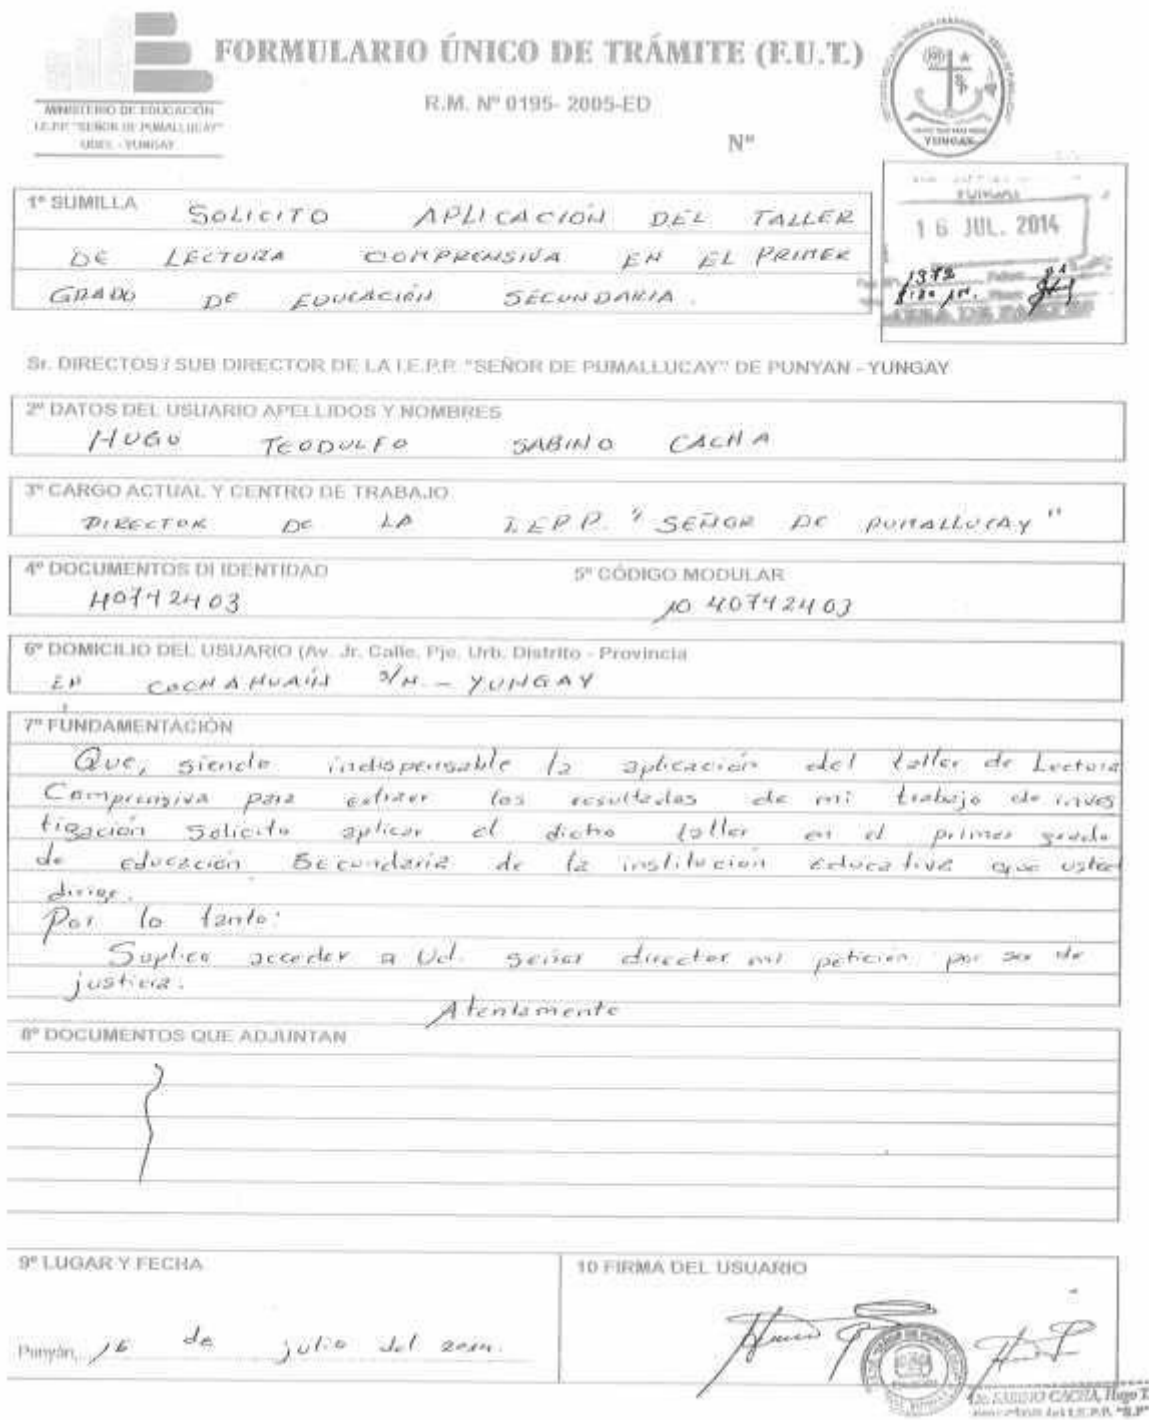 FORMULARIO ÚNICO DE TRÁMITE (F.U.T.)
R.M. Nº 0195- 2005-ED
MINISTERIO DE EDUCACIÓN
I.E.P.P. "SEÑOR DE PUMALLUCAY"
UGEL - YUNGAY
Nº
YUNGAY
1º SUMILLA
SOLICITO APLICACIÓN DEL TALLER
DE LECTURA COMPRENSIVA EN EL PRIMER
GRADO DE EDUCACIÓN SECUNDARIA.
YUNGAY
16 JUL. 2014
1372
MESA DE PARTES
Sr. DIRECTOS / SUB DIRECTOR DE LA I.E.P.P. "SEÑOR DE PUMALLUCAY" DE PUNYAN - YUNGAY
2º DATOS DEL USUARIO APELLIDOS Y NOMBRES
HUGO TEODULFO SABINO CACHA
3º CARGO ACTUAL Y CENTRO DE TRABAJO
DIRECTOR DE LA I.E.P.P. "SEÑOR DE PUMALLUCAY"
4º DOCUMENTOS DI IDENTIDAD 5º CÓDIGO MODULAR
40742403 10 40742403
6º DOMICILIO DEL USUARIO (Av. Jr. Calle, Pje. Urb. Distrito - Provincia
EN COCHAHUAIN S/N. - YUNGAY
7º FUNDAMENTACIÓN
Que, siendo indispensable la aplicación del taller de Lectura
Comprensiva para extraer los resultados de mi trabajo de inves
tigación Solicito aplicar el dicho taller en el primer grado
de educación Secundaria de la institución Educativa que usted
dirige.
Por lo tanto:
Suplico acceder a Ud. señor director mi petición por ser de
justicia.
Atentamente
8º DOCUMENTOS QUE ADJUNTAN
9º LUGAR Y FECHA 10 FIRMA DEL USUARIO
Punyán, 16 de julio del 2014.
SABINO CACHA, Hugo T.